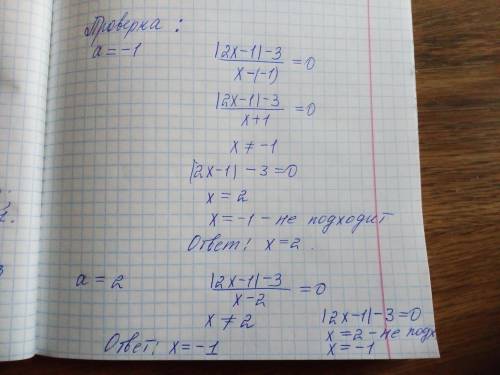 Проверка:
a = -1
|2x-1|-3 / x-(-1) = 0
|2x-1|-3 / x+1 = 0
x ≠ -1
|2x-1| -3 = 0
x = 2
x = -1 - не подходит
Ответ: x = 2.
a = 2
|2x-1|-3 / x-2 = 0
x ≠ 2
|2x-1|-3 = 0
x = 2 - не подх
x = -1
Ответ: x = -1